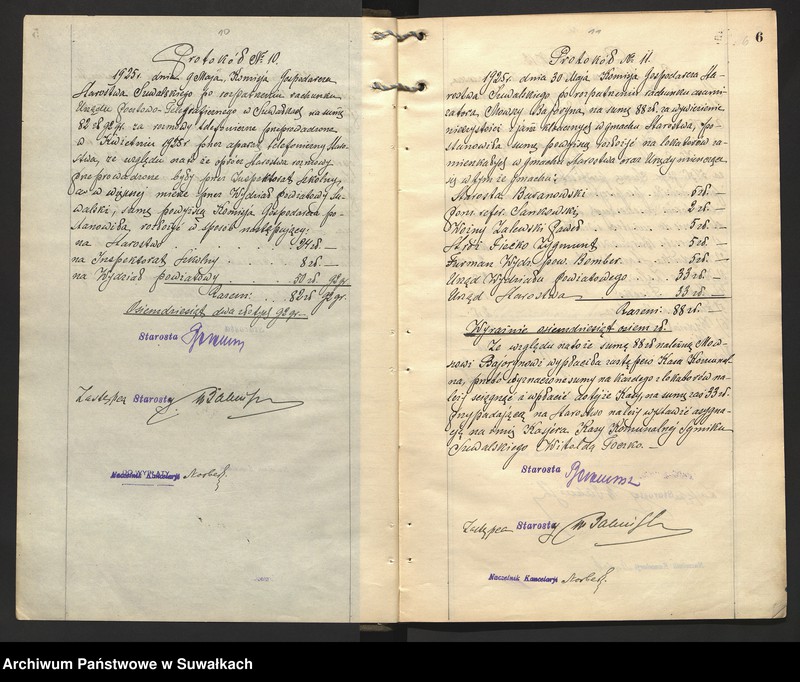 10
Protokół № 10.
1925r. dnia 9 Maja, Komisja Gospodarcza
Starostwa Suwalskiego po rozpatrzeniu rachunku
Urzędu Pocztowo-Telegraficznego w Suwałkach na sumę
82 zł. 92 gr. za rozmowy telefoniczne przeprowadzone
w Kwietniu 1925r przez aparat telefoniczny Staro-
stwa, ze względu na to że oprócz Starostwa rozmowy
przeprowadzone były przez Inspektorat Szkolny,
a w większej mierze przez Wydział powiatowy Su-
walski, sumę powyższą Komisja Gospodarcza po-
stanowiła rozłożyć w sposób następujący:
na Starostwo . . . . 24 zł. —
na Inspektorat Szkolny . . . 8 zł. —
na Wydział powiatowy . . . 50 zł. 92 gr.
Razem: . . 82 zł 92 gr.
Osiemdziesiąt dwa złotych 92 gr. —
Starosta
Zastępca Starosty
DO WYPŁATY
Naczelnik Kancelarji
11
6
Protokół № 11.
1925r. dnia 30 Maja Komisja Gospodarcza Sta-
rostwa Suwalskiego po rozpatrzeniu rachunku asami-
zatora, Mowszy Bajoryna, na sumę 88 zł. za wywiezienie
nieczystości z jam kloacznych w gmachu Starostwa, Po-
stanowiła sumę powyższą rozłożyć na lokatorów za-
mieszkałych w gmachu Starostwa oraz Urzędy mieszczące
się w tym że gmachu:
Starosta Buranowski . . . 5 zł. —
Pom. refer. Jankowski, . . . 2 zł. —
Woźny Zalewski Paweł . . . 5 zł. —
Stróż Fiećko Zygmunt . . . 5 zł. —
Furman Wydz. pow. Bomber . . . 5 zł. —
Urząd Wydziału Powiatowego . . . 33 zł. —
Urząd Starostwa 33 zł. —
Razem: 88 zł. —
Wyraźnie osiemdziesiąt osiem zł.
Ze względu na to że sumę 88 zł należną Mow-
szowi Bajorynowi wypłaciła zastępczo Kasa Komunal-
na, przeto wyznaczone sumy na każdego z lokatorów na-
leży ściągnąć i wpłacić do tejże Kasy, na sumę zaś 33 zł.
przypadającą na Starostwo należy wystawić asygna-
cję na imię Kasjera Kasy Komunalnej Sejmiku
Suwalskiego Witolda .
Starosta
Zastępca Starosty
Naczelnik Kancelarji
Archiwum Państwowe w Suwałkach